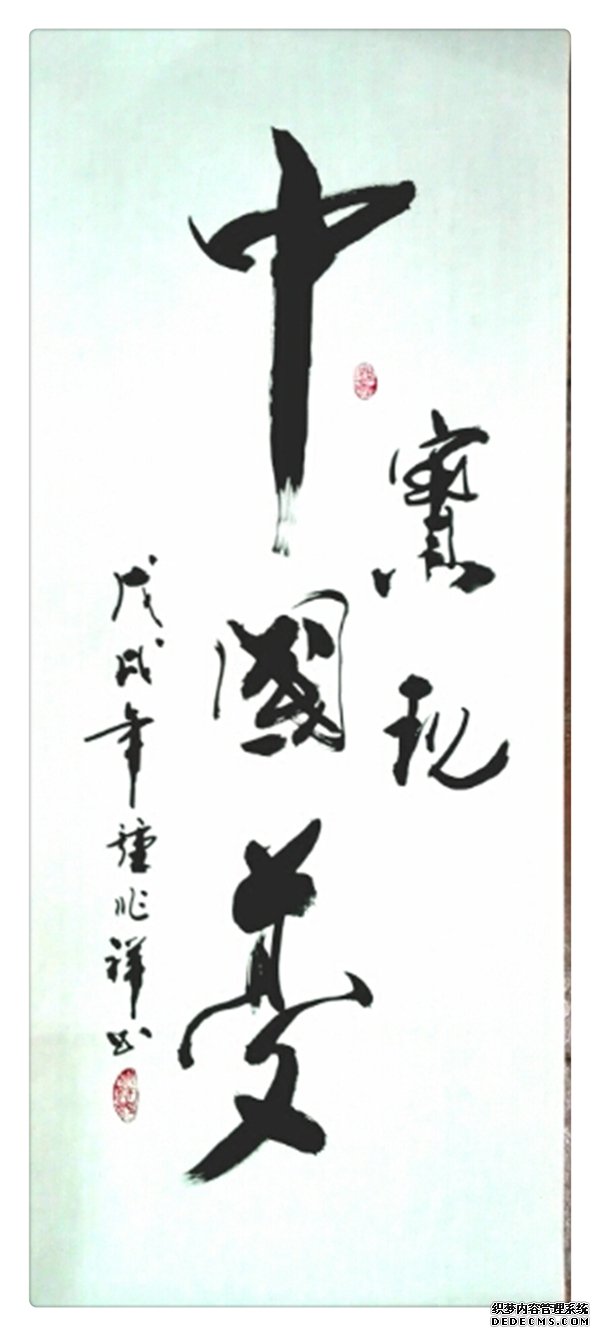 實現
中國夢
戊戌年 兆祥书
织梦内容管理系统
DEDECMS.COM